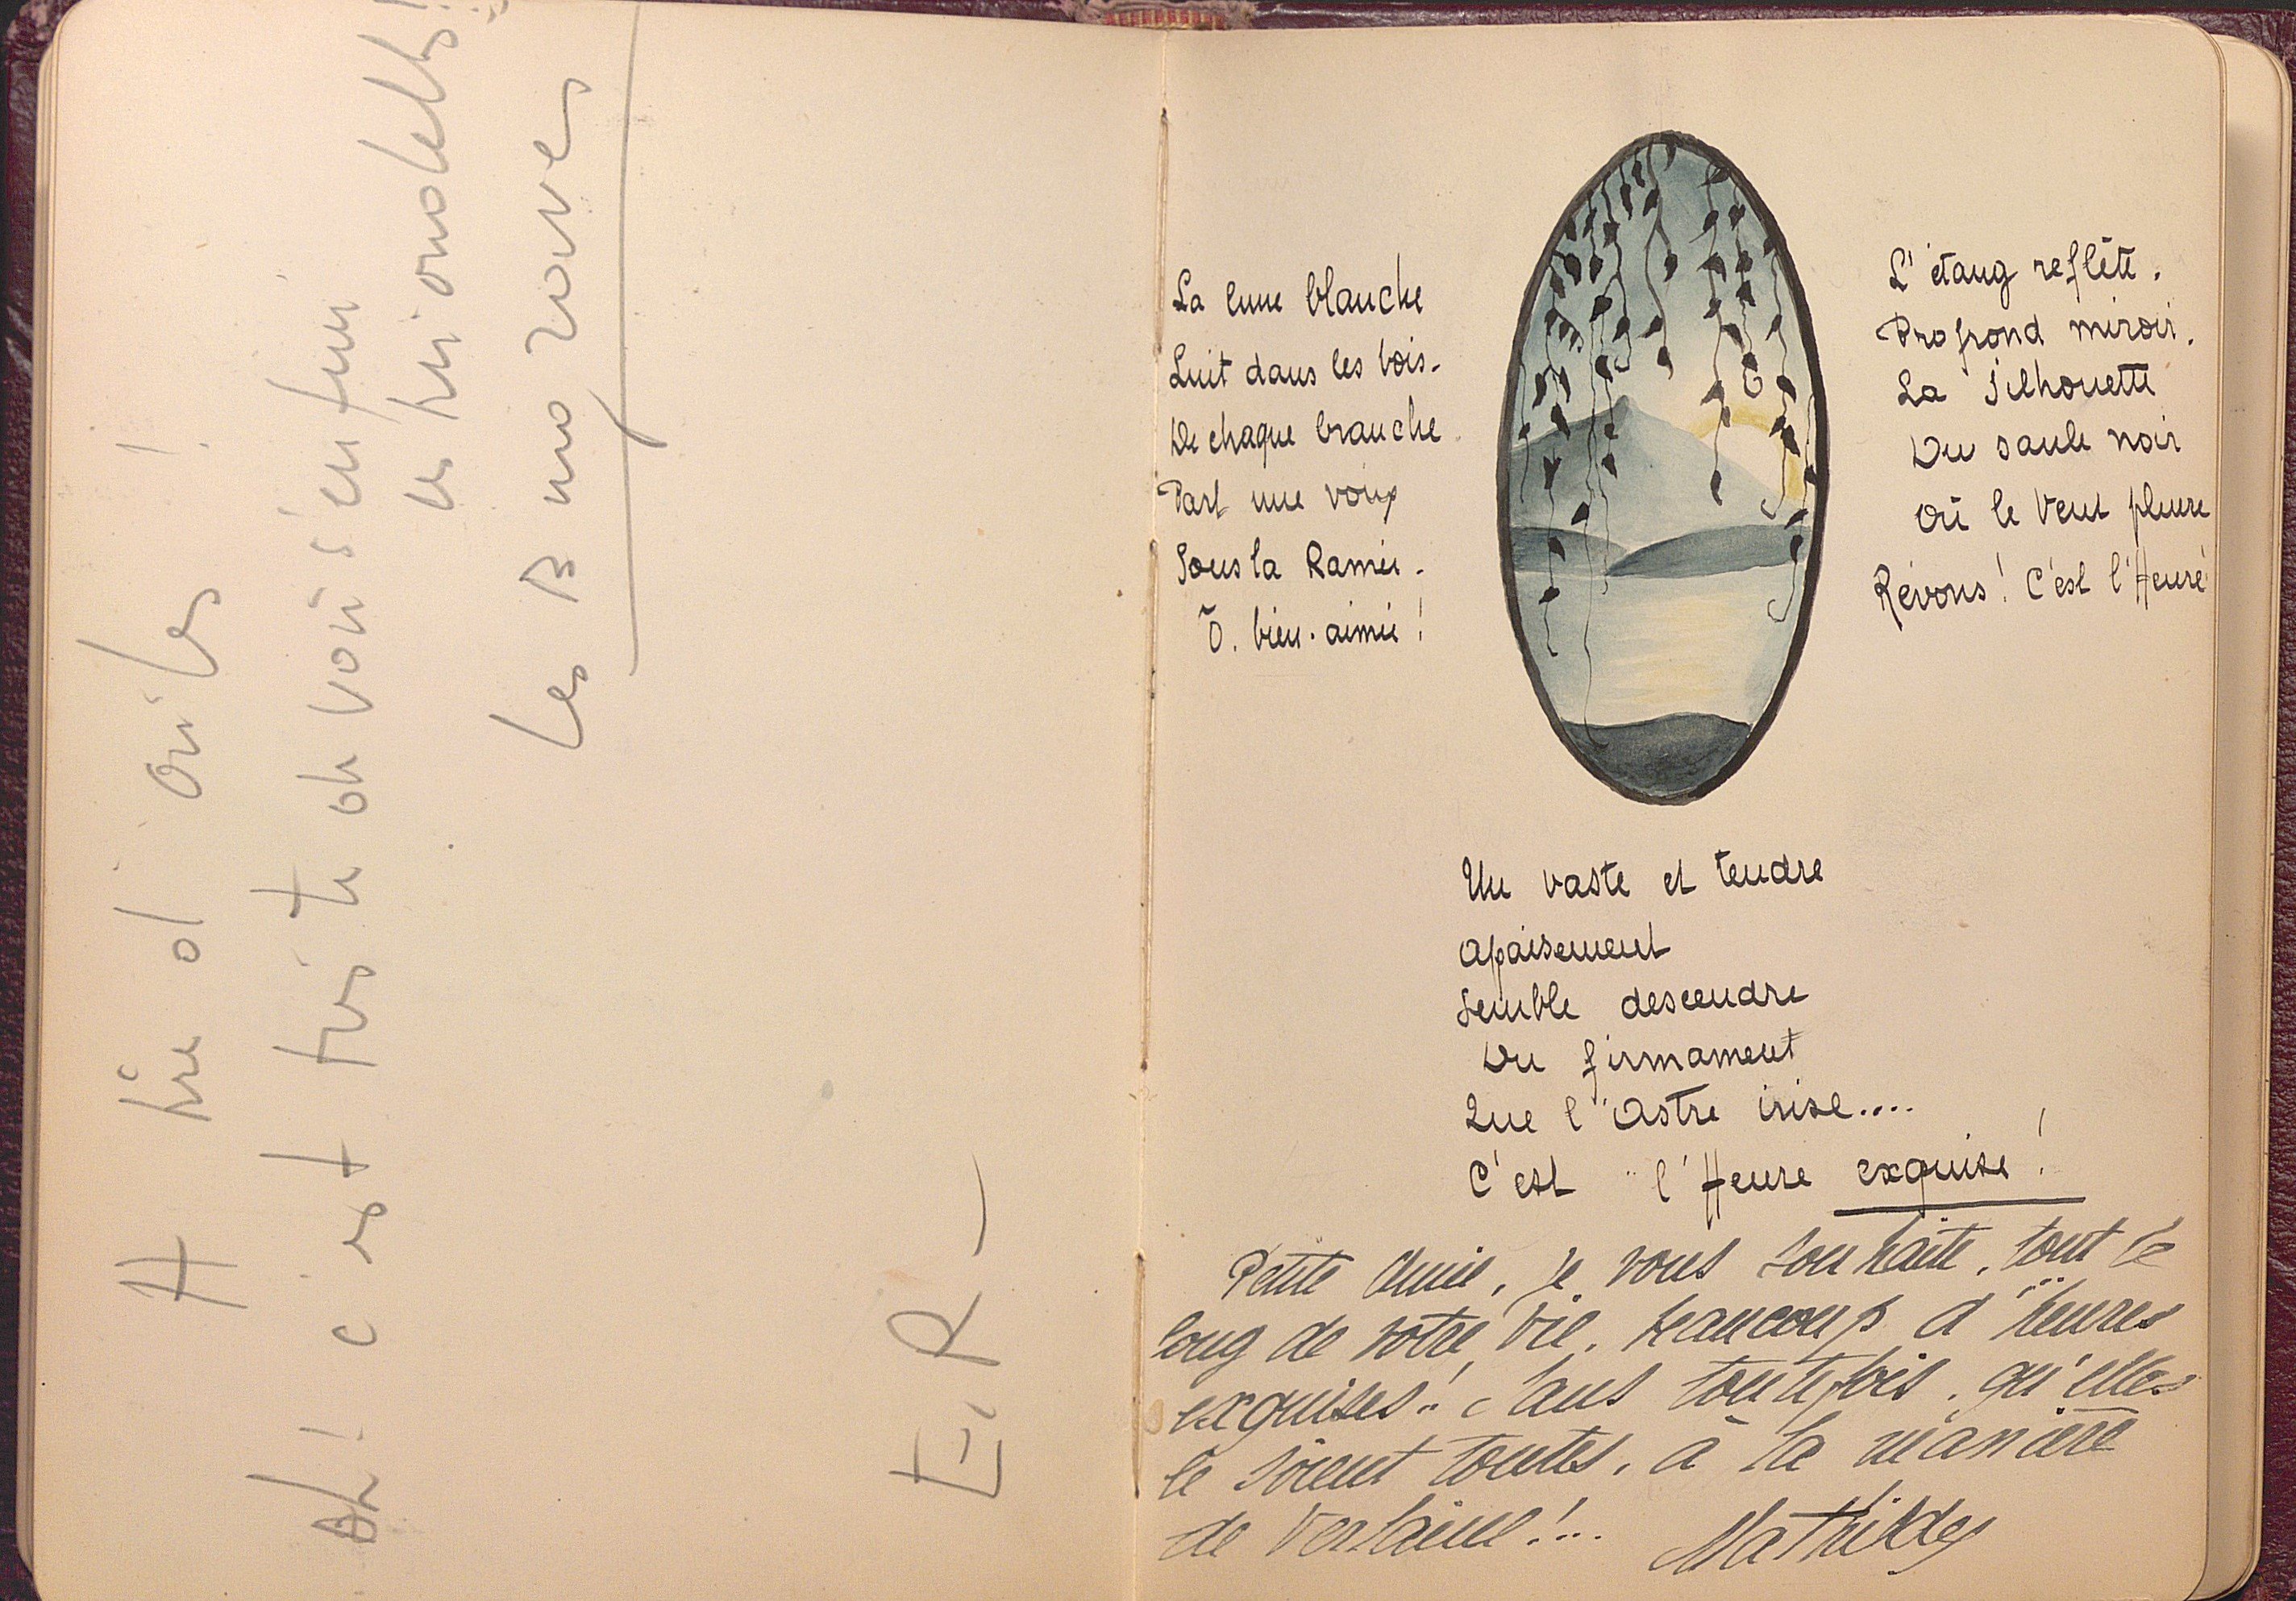 A tire d'ailes!
Ah! c'est triste de voir s'enfuir
les hirondelles!!
Les Bmo
E. R_
La lune blanche
Luit dans les bois.
De chaque branche
Part une voix
Sous la Ramée.
Ô. bien-aimée!
L'étang reflète.
Profond miroir.
La Silhouette
Du saule noir
Où le vent pleure
Rêvons! C'est l'Heure
Un vaste et tendre
apaisement
Semble descendre
Du firmament
Que l'astre irise....
C'est l'Heure exquise!
Petite Amie, je vous souhaite, tout le
long de votre vie, beaucoup d'heures
exquises!! Sans toutefois, qu'elles
le soient toutes, à la manière
de Verlaine!...
Mathilde